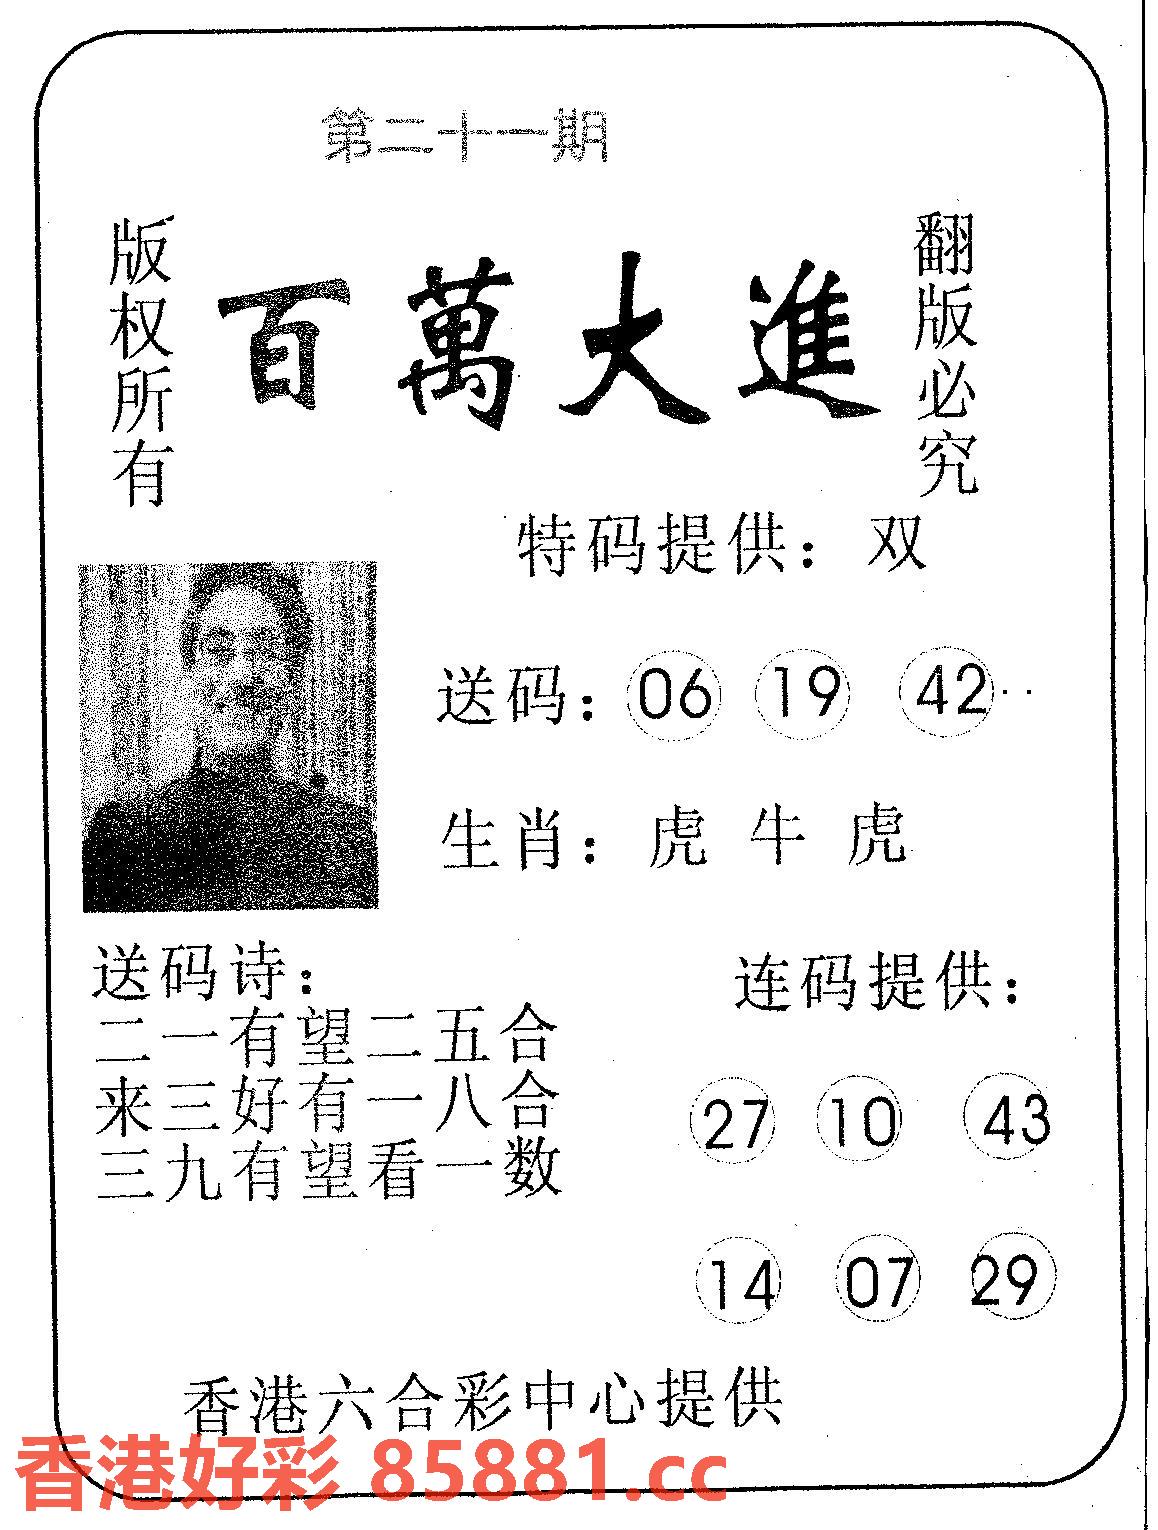 第二十一期
版权所有
百萬大進
翻版必究
特码提供：双
送码：06 19 42
生肖：虎 牛 虎
送码诗：
二一有望二五合
来三好有一八合
三九有望看一数
连码提供：
27 10 43
14 07 29
香港六合彩中心提供
香港好彩 85881.cc